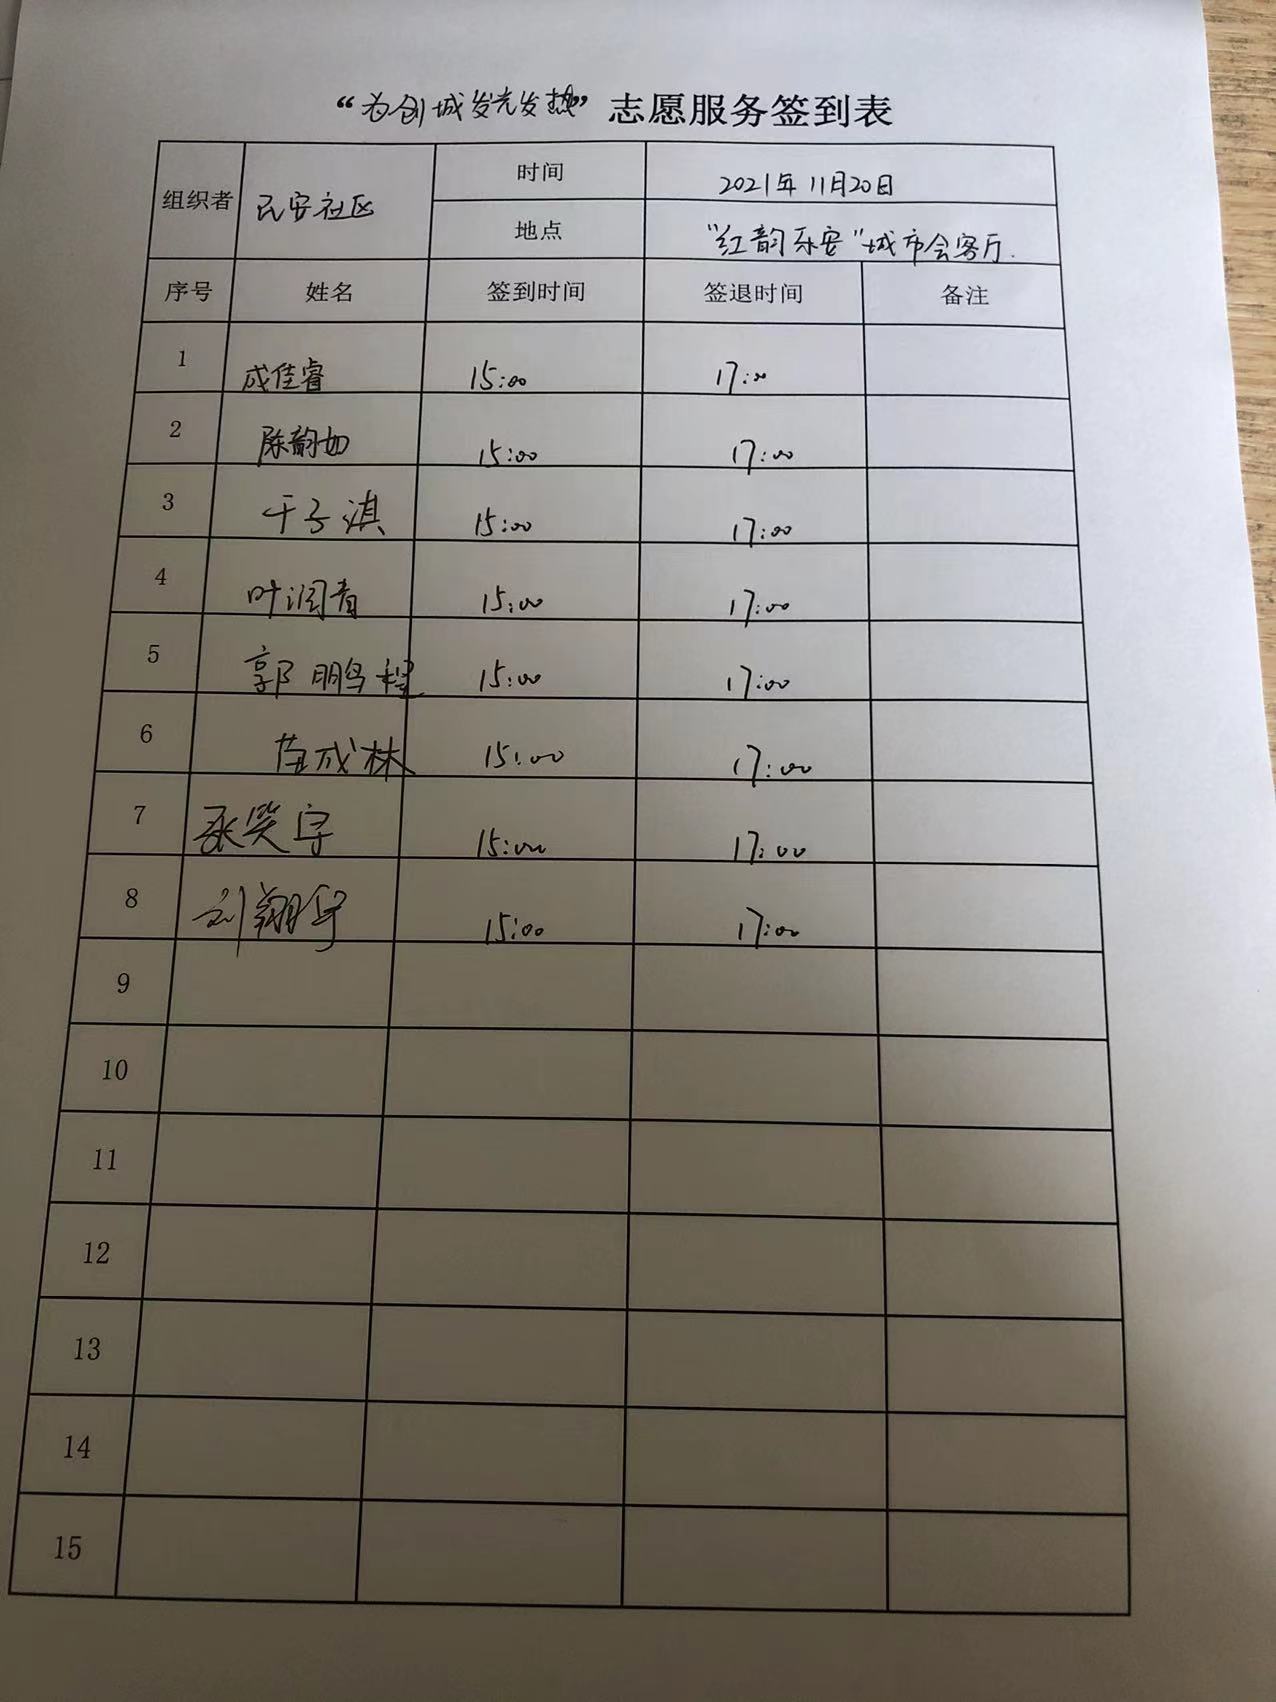 “为创城发光发热”志愿服务签到表
组织者 民安社区 时间 2021年11月20日
地点 “红韵乐安”城市会客厅.
序号 姓名 签到时间 签退时间 备注
1 成佳睿 15:00 17:00
2 陈韵如 15:00 17:00
3 于子淇 15:00 17:00
4 叶润青 15:00 17:00
5 郭鹏程 15:00 17:00
6 苗成林 15:00 17:00
7 张笑宇 15:00 17:00
8 刘翔宇 15:00 17:00
9
10
11
12
13
14
15